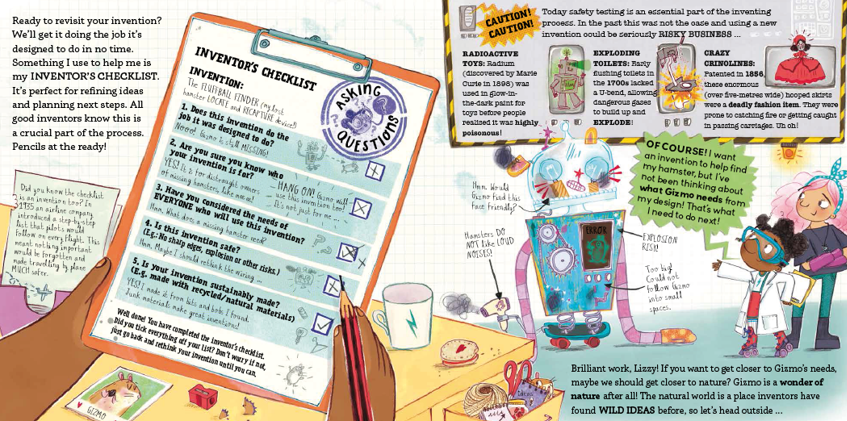 Ready to revisit your invention?
We'll get it doing the job it's
designed to do in no time.
Something I use to help me is
my INVENTOR'S CHECKLIST.
It's perfect for refining ideas
and planning next steps. All
good inventors know this is
a crucial part of the process.
Pencils at the ready!
Did you know the checklist
is an invention too? In
1935 an airline company
introduced a step-by-step
list that pilots would
follow on every flight. This
meant nothing important
would be forgotten and
made travelling by plane
MUCH safer.
INVENTOR'S CHECKLIST
INVENTION:
The FLUFFBALL FINDER (my lost
hamster LOCATE and RECAPTURE device!)
ASKING
QUESTIONS
1. Does this invention do the
job it was designed to do?
Nope! Gizmo is still MISSING!
2. Are you sure you know who
your invention is for?
YES! It is for distraught owners
of missing hamsters, like me!
HANG ON! Gizmo will
use this invention too!
It's not just for me...
3. Have you considered the needs of
EVERYONE who will use this invention?
Hmm. What does a missing hamster need?
4. Is this invention safe?
(E.g. No sharp edges, explosion or other risks.)
Hmm. Maybe I should rethink the wiring ...
5. Is your invention sustainably made?
(E.g. made with recycled/natural materials)
YES! I made it from bits and bobs I found.
Junk materials make great inventions!
Well done! You have completed the inventor's checklist.
Did you tick everything off your list? Don't worry if not,
just go back and rethink your invention until you can.
GIZMO
CAUTION!
CAUTION!
Today safety testing is an essential part of the inventing
process. In the past this was not the case and using a new
invention could be seriously RISKY BUSINESS ...
RADIOACTIVE
TOYS: Radium
(discovered by Marie
Curie in 1898) was
used in glow-in-
the-dark paint for
toys before people
realised it was highly
poisonous!
EXPLODING
TOILETS: Early
flushing toilets in
the 1700s lacked
a U-bend, allowing
dangerous gases
to build up and
EXPLODE!
CRAZY
CRINOLINES:
Patented in 1856,
these enormous
(over five-metres wide) hooped skirts
were a deadly fashion item. They were
prone to catching fire or getting caught
in passing carriages. Uh oh!
Hmm. Would
Gizmo find this
face friendly?
Hamsters DO
NOT like LOUD
NOISES!
ERROR
EXPLOSION
RISK!
Too big!
Could not
follow Gizmo
into small
spaces.
OF COURSE! I want
an invention to help find
my hamster, but I've
been thinking about
what Gizmo needs from
my design! That's what
I need to do next!
Brilliant work, Lizzy! If you want to get closer to Gizmo's needs,
maybe we should get closer to nature? Gizmo is a wonder of
nature after all! The natural world is a place inventors have
found WILD IDEAS before, so let's head outside ...